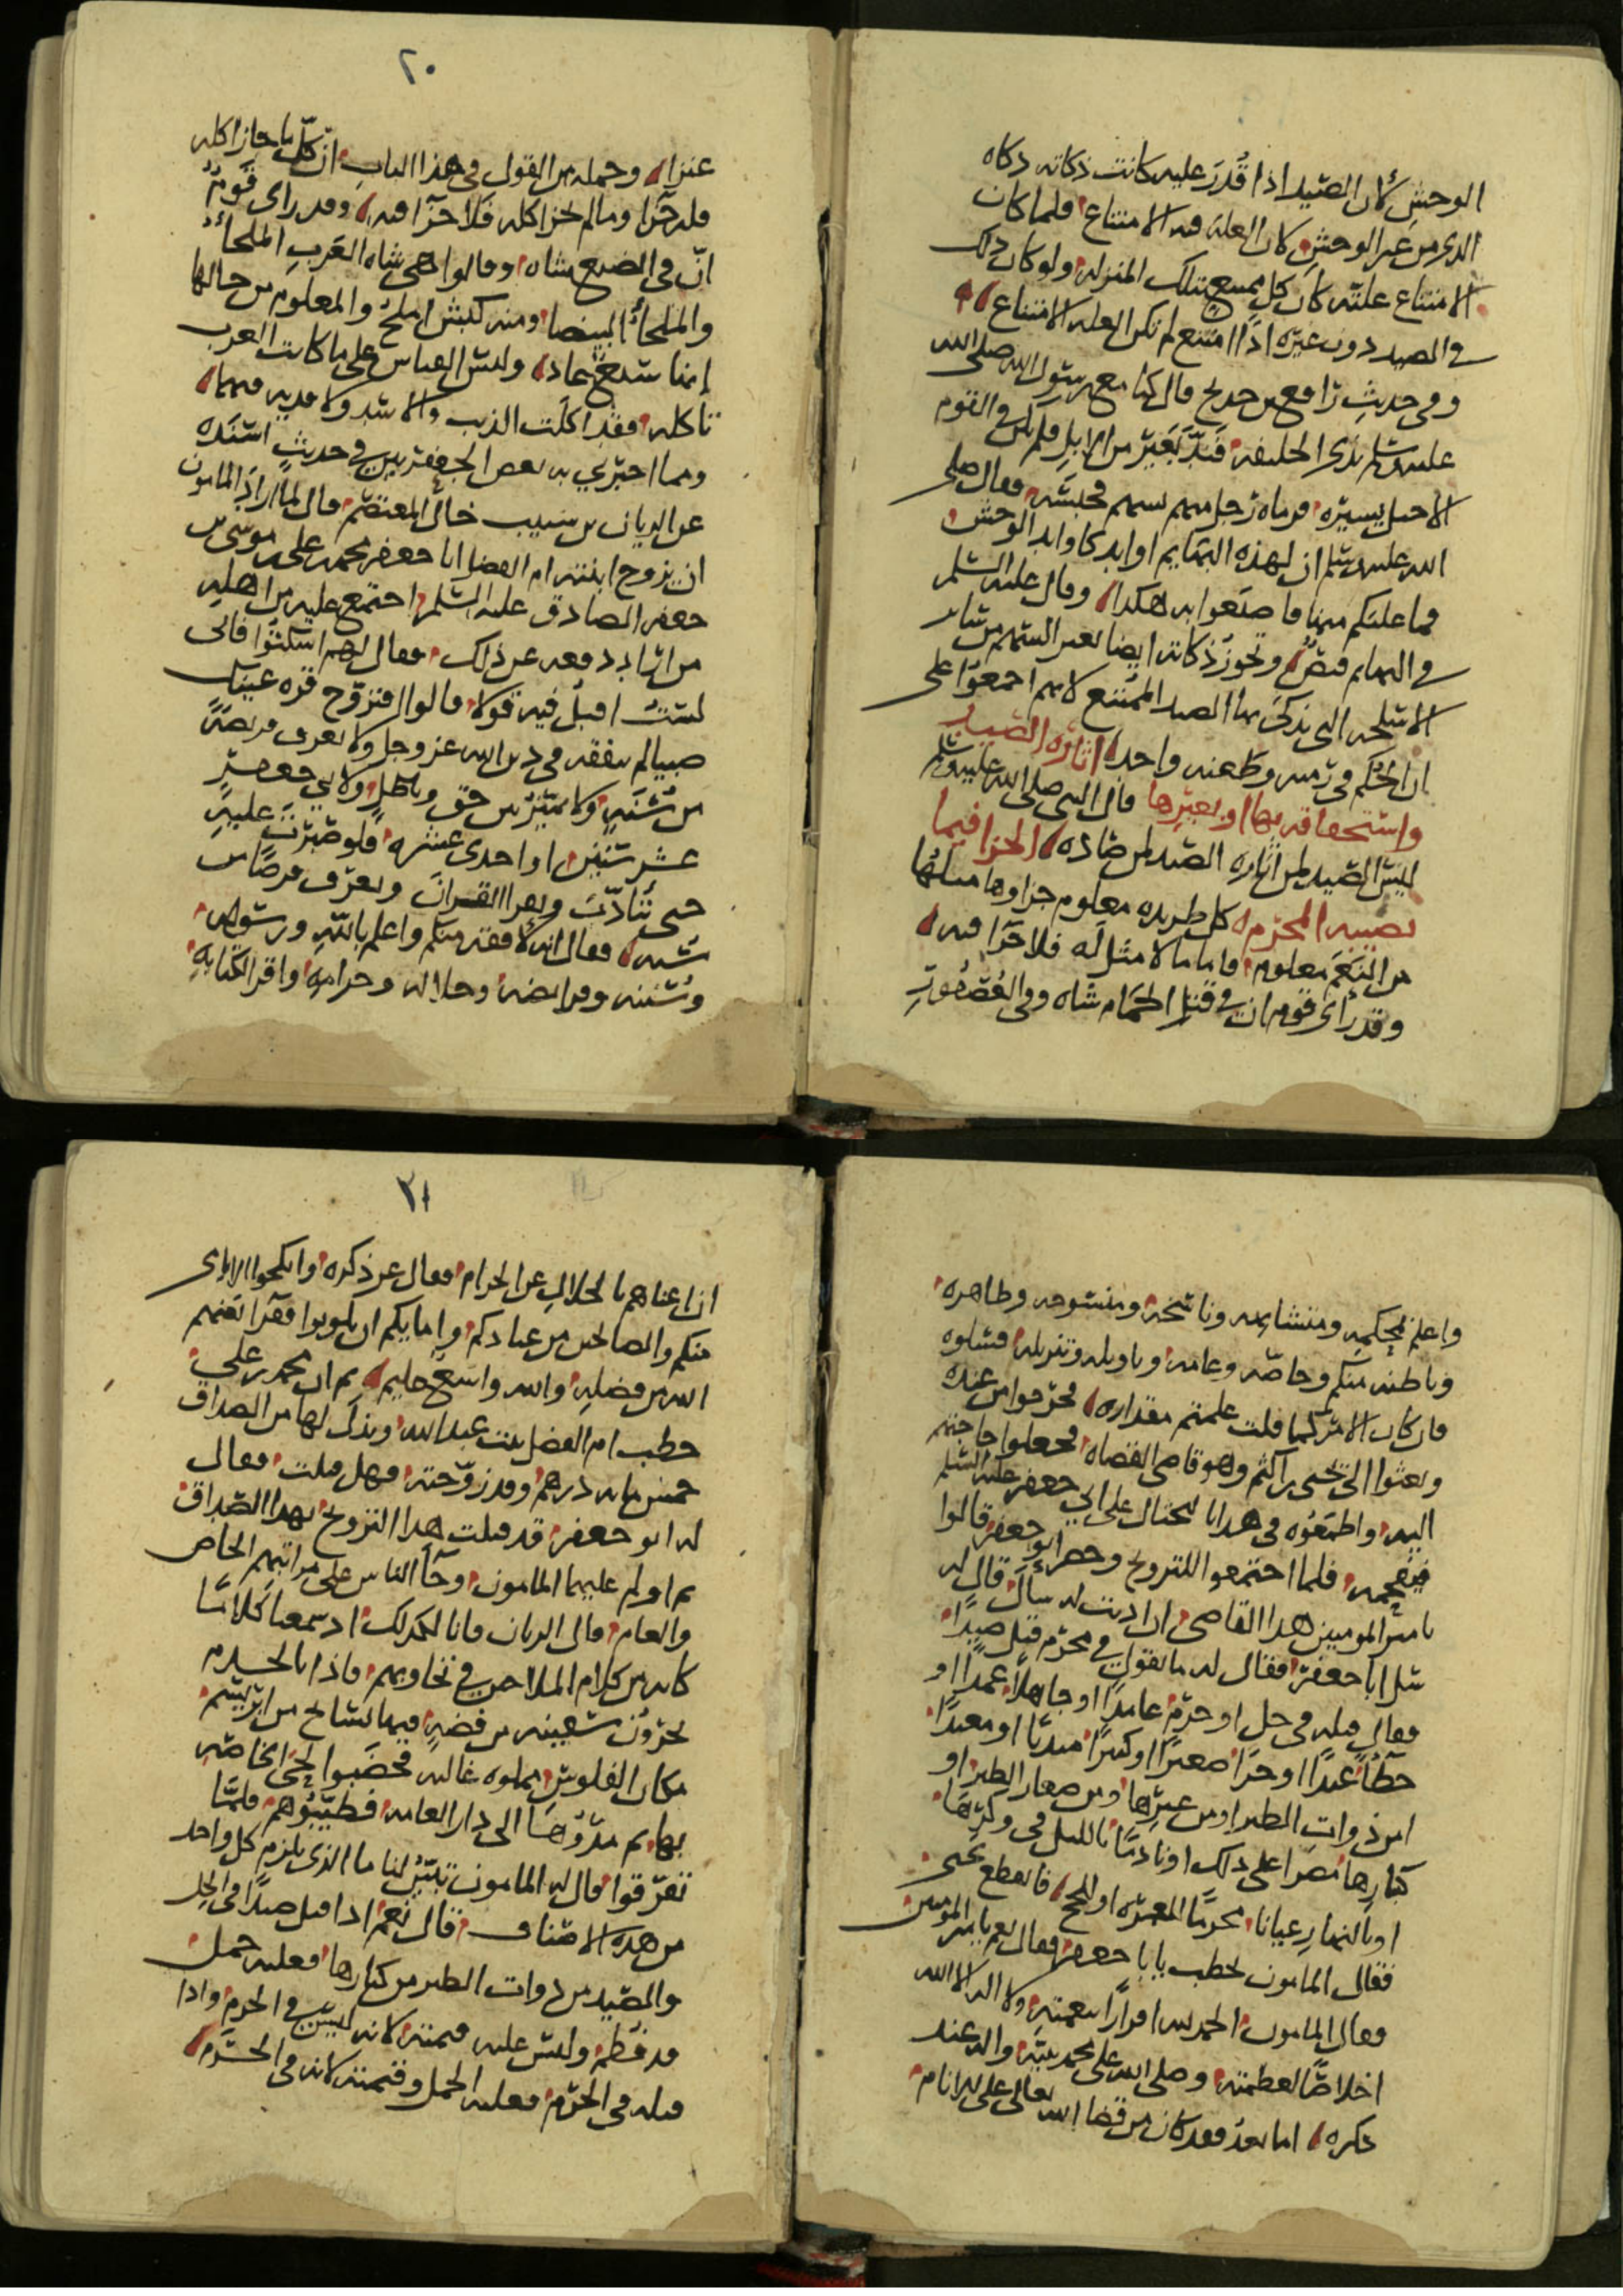 الوحش لأن الصيد اذا قُدرَ عليه كانت ذكاته ذكاه
الذى من غير الوحش كان العله فيه الامتناع فلما كان
الامتناع علته كان كل ممتنع بتلك المنزله ولو كان ذلك
في الصيد دون غيره اذا امتنع لم تكن العله الامتناع
وفى حديث رافع بن خديج قال كنا مع رسول الله صلى الله
عليه وسلم بذى الحليفه فندّ بَعير من الابل فلم يكن في القوم
الاخيل يسيره فرماه رجل منهم بسهم فحبسَه فقال صلى
الله عليه وسلم ان لهذه البهايم اوابد كاوابد الوحش
فما غلبكم منها فاصنعوا به هكذا وقال عليه السلم
في البهايم وتجوز ذكاته ايضا بغير السهم من ساير
الاسلحه التى يذكى بها الصيد الممتنع لانهم اجمعوا على
ان الحكم في رَميه وطعنه واحد اثاره الصيد
واستحقاقه بها او بغيرها قال النبى صلى الله عليه وسلم
ليسَ الصيد لمن اثاره الصيد لمن صاده الجزا فيما
يصيبه المحرم كل طريده معلوم جزاوها مثلها
من النعَم معلوم واما ما لا مثل له فلا جزا فيه
وقد رأى قوم ان في قتل الحمام شاه وفى العُصفورِ
٢٠
عنزا وجمله من القول في هذا الباب ان كلّ ما جاز اكله
فله جزا وما لم يجز اكله فلا جزا فيه وقد راى قَومٌ
انّ في الضبع شاه وقالوا هى شاه العَربِ الملحأ
والملحأ البيضا ومنه كبش املح والمعلوم من حالها
إنها سَبع عاد وليس القياس على ما كانت العرب
تاكله فقد اكلت الذيب والاسَد ولا فديه فيهما
ومما اخبرني به بعض الجعفريين في حديث اسنَده
عن الريان بن شبيب خال المعتصم قال لما ارادَ المامون
ان يزوج ابنته ام الفضل ابا جعفر محمد بن على بن موسى بن
جعفر الصادق عليه السلم اجتمع عليه من اهله
من اراد دفعه عن ذلك فقال لهم اسكتوا فانى
لستُ اقبل فيه قولا قالوا افتزوّج قره عينك
صبيا لم يتفقه في دين الله عز وجل ولا يعرف فريضةً
من سُنّه ولا يميز بين حق وباطل ولابي جعفر
عشر سنين او احدى عشره فلو صَبرت عليه
حتى يتأدّبَ ويقرا القران ويعرف فرضا من
سُنه فقال انه لافقه منكم واعلم بالله ورسوله
وسُننه وفرايضه وحلاله وحرامه واقرا لكتابهِ
واعلم بمحكمه ومتشابهه وناسخه ومنسوخه وظاهره
وباطنه منكم وخاصّه وعامه وتاويله وتنزيله فسلوه
فان كان الامر كما قلت علمتم مقداره فخرجوا من عنده
وبعثوا الى يحيى بن اكثم وهو قاضى القضاه فجعلوا حاجتهم
اليه واطمَعُوه في هدايا ليحتال على ابي جعفر عليه السلم
فيفحمه فلما اجتمعوا للتزويج وحضر ابو جعفر قالوا
يا امير المومنين هذا القاضى ان اذنت له سالَ قال له
سل ابا جعفر فقال له ما تقول في محرم قتل صيدًا
فقال قتله في حل او حرَم عالما او جاهلا عمدا او
خطأ عبدًا او حرّا صغيرًا او كبيرًا مبديًا او معيدًا
امن ذوات الطير او من غيرها ومن صغار الطير او
كبارها مصرا على ذلك او نادمًا بالليل في وكرها
او بالنهار عيانا محرمًا للعمره او للحج فانقطع يحيى
فقال المامون تخطب يا با جعفر فقال نعم يا امير المومنين
فقال المامون الحمد لله اقرارًا بنعمته ولا اله الا الله
اخلاصًا لعظمته وصلى الله على محمد نبيّه والله عند
ذكره اما بعد فقد كان من قضا الله تعالى على الانام
٢١
ان اغناهم بالحلال عن الحرام فقال عز ذكره وانكحوا الايامى
منكم والصالحين من عبادكم وامايكم ان يكونوا فقَرا يُغنهم
الله من فضله والله واسع عليم ثم ان محمد بن على
خطب ام الفضل بنت عبد الله وبذل لها من الصداق
خمس مايه درهم وقد زوّجته فهل قبلت فقال
له ابو جعفر قد قبلت هذا التزويج بهذا الصّداق
ثم اولم عليها المامون وجآ الناس على مراتبهم الخاص
والعام قال الريان فانا لكذلك اذ سمعنا كلامًا
كانه من كلام الملاحين في تحاوبهم فاذا بالخدم
يجرّون سَفينه من فضهٍ فيها نسايج من ابريسَم
مكان القلوس مملوه غاليه فخضَبوا لحى الخاصّه
بها ثم مَدّوها الى دار العامه فطيّبُوهم فلمّا
تفرّقوا قال له المامون تبيّن لنا ما الذى يلزم كل واحد
من هذه الاصناف قال نَعم اذا قتل صيدًا في الحِل
والصّيد من ذوات الطير من كبارها فعليه حمل
قد فُطِم وليس عليه قيمته لانه ليسَ في الحرم واذا
قتله في الحرَم فعليه الحمل وقيمته لانه في الحَرَم